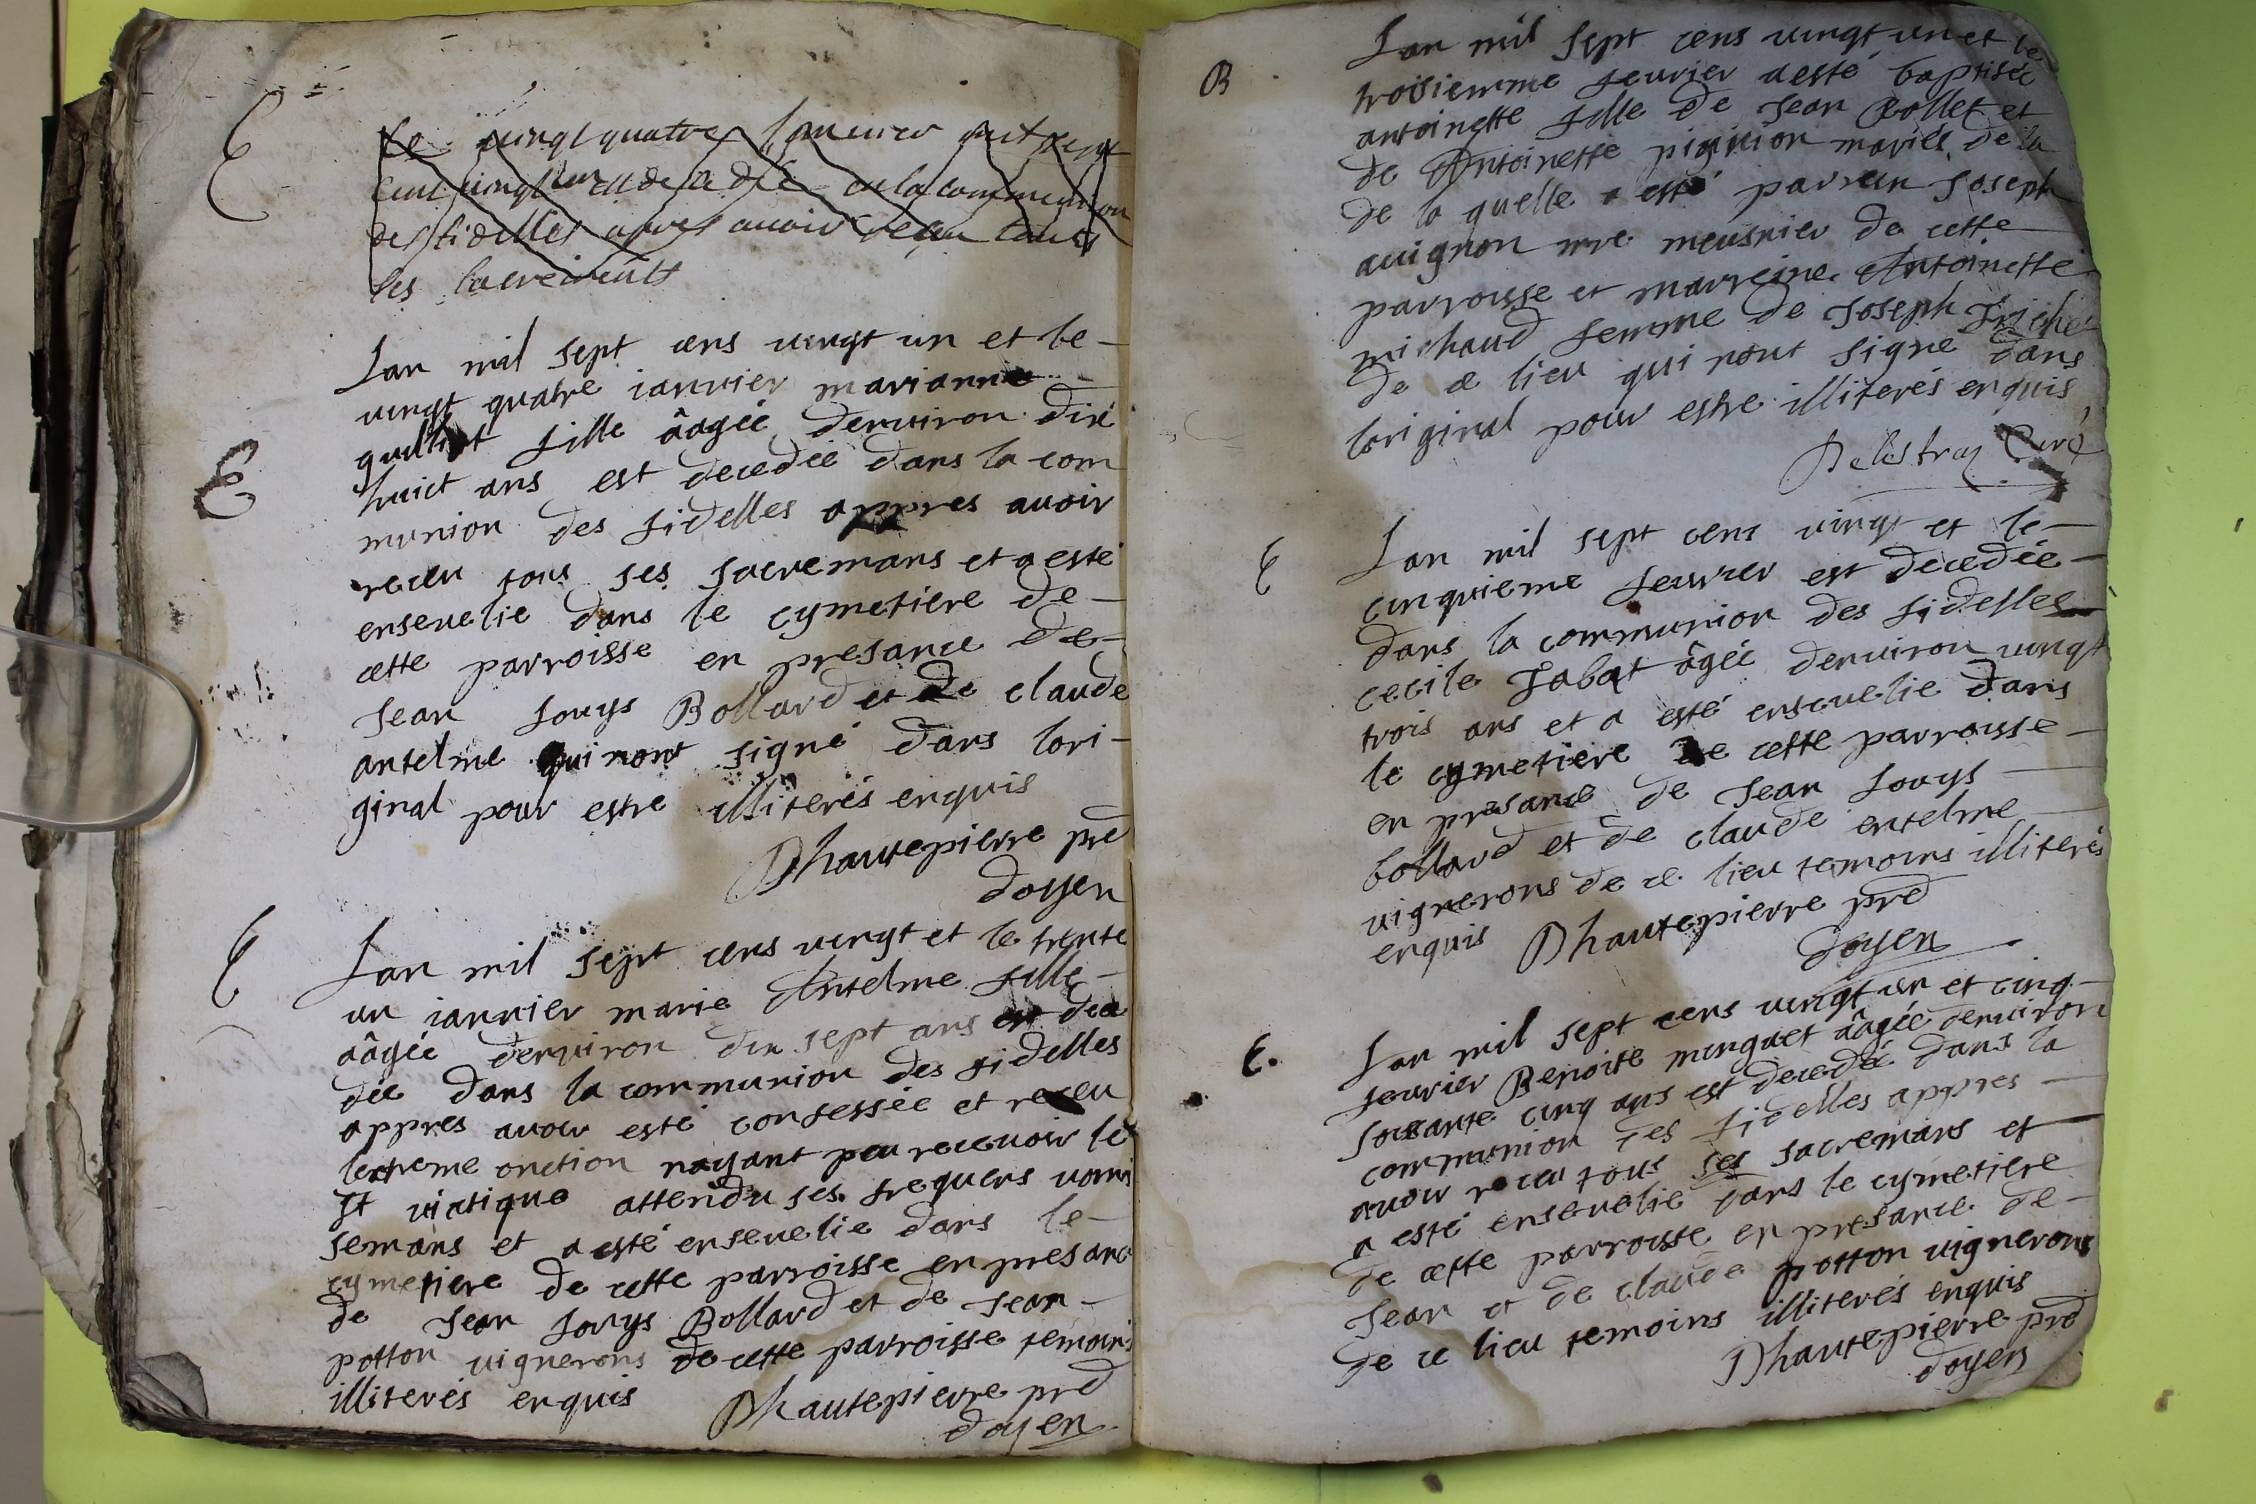 E
Le vingt quatre Janvier mil sept
cent vingt un est decedé en la communion
des fidelles apres avoir receu tous
les sacrements
Lan mil sept cens vingt un et le
vingt quatre ianvier marianne
E
fille âagée denviron dix
huict ans est decedée dans la com
munion des fidelles appres avoir
receu tous ses sacremans et a esté
ensevelie dans le cymetiere de
cette parroisse en presance de
Jean Louys Bollard et de claude
antelme qui nont signé dans lori
ginal pour estre illiterés enquis
Dhautepierre pre
doyen
E
Lan mil sept cens vingt et le trente
un ianvier marie Antelme fille
aâgée denviron dix sept ans est dece
dée dans la communion des fidelles
appres avoir esté confessée et receu
lextreme onction nayant peu recevoir le
St viatique attendu ses frequens vomi
semans et a esté ensevelie dans le
cymetiere de cette parroisse en presance
de Jean Louys Bollard et de Jean
potton vignerons de cette parroisse temoins
illiterés enquis Dhautepierre pre
doyen
B
Lan mil sept cens vingt un et le
troisiemme fevrier a esté baptisée
antoinette fille de Jean Rollet et
de Antoinette mariés de la
de la quelle a esté parrein Joseph
avignon mre meusnier de cette
parroisse et marreine Antoinette
michaud femme de Joseph
de ce lieu qui nont signé dans
loriginal pour estre illiterés enquis
Curé
E
Lan mil sept cens vingt et le
cinquieme fevrier est decedée
dans la communion des fidelles
cecile Jabat âgée denviron vingt
trois ans et a esté ensevelie dans
le cymetiere de cette parroisse
en presance de Jean Louys
bollard et de claude entelme
vignerons de ce lieu temoins illiterés
enquis Dhautepierre pre
doyen
E.
Lan mil sept cens vingt un et cinq
fevrier Benoite minguet âagée denviron
soixante cinq ans est decedée dans la
communion des fidelles appres
avoir receu tous ses sacremans et
a esté ensevelie dans le cymetiere
de cette parroisse en presance de
Jean et de claude potton vignerons
de ce lieu temoins illiterés enquis
Dhautepierre pre
doyen